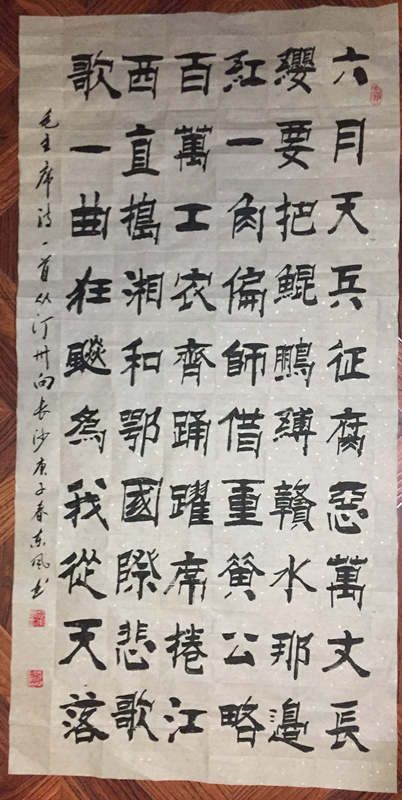 六月天兵征腐惡萬丈長
纓要把鯤鵬縛贛水那邊
紅一角偏師借重黃公略
百萬工农齊踊躍席捲江
西直搗湘和鄂國際悲歌
歌一曲狂飈為我從天落
毛主席诗一首从汀州向长沙庚子春东风书